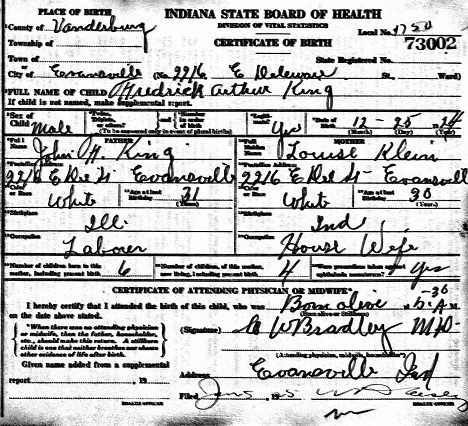 PLACE OF BIRTH
INDIANA STATE BOARD OF HEALTH
County of Vanderburg
DIVISION OF VITAL STATISTICS
Local No. 1750
Township of
CERTIFICATE OF BIRTH
73002
Town of
State Registered No.
City of Evansville (No. 2216 E Delewar St., Ward)
FULL NAME OF CHILD Fredrick Arthur King
If child is not named, make supplemental report.
Sex of Child Male
(To be answered only in event of plural births)
Yes
Date of Birth 12-25-1924
(Month) (Day) (Year)
FATHER
MOTHER
Full Name John H. King
Full Name Louise Klein
2216 E Del St- Evansville
2216 E Del St- Evansville
Color or Race White
Age at last Birthday 31 (Years)
Color or Race White
Age at last Birthday 30 (Years)
Birthplace Ill
Birthplace Ind
Occupation Laborer
Occupation House Wife
Number of children born to this mother, including present birth 6
Number of children, of this mother, now living, including present birth 4
Were precautions taken against ophthalmia neonatorum? Yes
CERTIFICATE OF ATTENDING PHYSICIAN OR MIDWIFE*
I hereby certify that I attended the birth of this child, who was Born alive at 5:30 A.M.
on the date above stated.
(Born alive or Stillborn)
*When there was no attending physician
or midwife, then the father, householder,
etc., should make this return. A stillborn
child is one that neither breathes nor shows
other evidence of life after birth.
(Signature) W Bradley MD-
(Attending physician, midwife, householder)
Given name added from a supplemental
report , 19
Address Evansville Ind
Filed Jan
HEALTH OFFICER
HEALTH OFFICER